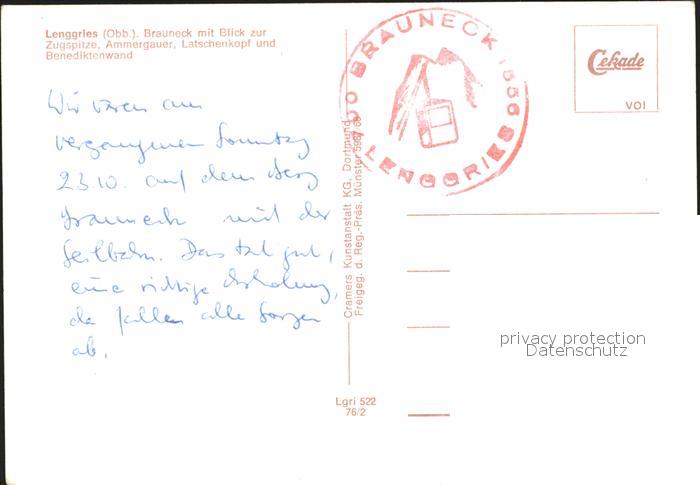 Lenggries (Obb.). Brauneck mit Blick zur
Zugspitze, Ammergauer, Latschenkopf und
Benediktenwand
Wir waren am
vergangenen Sonntag
23.10. auf dem Berg
Brauneck mit der
Seilbahn. Das tat gut,
eine richtige Erholung,
da fallen alle Sorgen
ab.
BRAUNECK 1556
LENGGRIES
Cekade
VOI
Cramers Kunstanstalt KG, Dortmund
Freigeg. d. Reg.-Präs. Münster
Lgri 522
76/2
privacy protection
Datenschutz